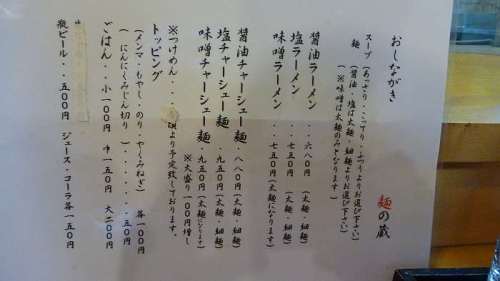 おしながき
麺の蔵
スープ（あっさり・こってり・ふつうよりお選び下さい）
麺（醤油・塩は太麺・細麺よりお選び下さい）
（※味噌は太麺のみとなります）
醤油ラーメン・・・六八〇円（太麺・細麺）
塩ラーメン・・・七五〇円（太麺・細麺）
味噌ラーメン・・・七五〇円（太麺になります）
醤油チャーシュー麺・八八〇円（太麺・細麺）
塩チャーシュー麺・九五〇円（太麺・細麺）
味噌チャーシュー麺・九五〇円（太麺になります）
※大盛り一〇〇円増し
※つけめん・・・より予定致しております。
トッピング
（メンマ・もやし・のり・やくみねぎ）各一〇〇円
（にんにくみじん切り）・・・・・・五〇円
ごはん・・小一〇〇円 中一五〇円 大二〇〇円
瓶ビール・・五〇〇円 ジュース・コーラ各一五〇円